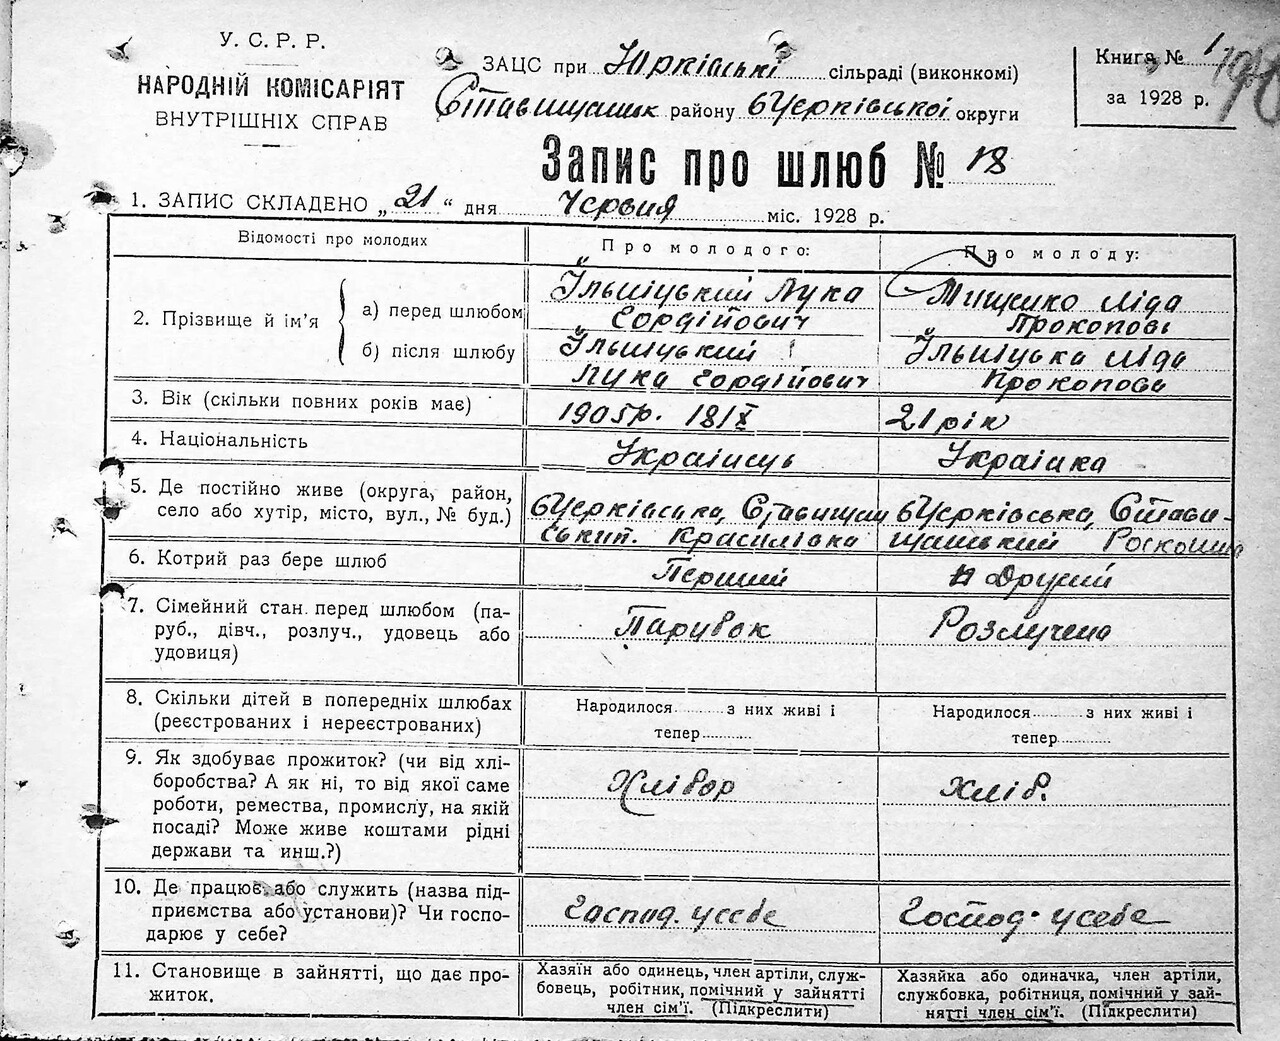 У. С. Р. Р.
НАРОДНІЙ КОМІСАРІЯТ
ВНУТРІШНІХ СПРАВ
ЗАЦС при Юрківські сільраді (виконкомі)
Ставищанськ району бЧерківської округи
Книга № 1
за 1928 р.
190
Запис про шлюб № 18
1. ЗАПИС СКЛАДЕНО „21“ дня Червня міс. 1928 р.
Відомості про молодих
Про молодого:
Про молоду:
2. Прізвище й ім’я
а) перед шлюбом
Ільніцький Лука
Гордійович
Мищенко Ліда
Прокопові
б) після шлюбу
Ільніцький
Лука Гордійович
Ільніцька Ліда
Прокопова
3. Вік (скільки повних років має)
1905р. 18/X
21 рік
4. Національність
Українець
Українка
5. Де постійно живе (округа, район,
село або хутір, місто, вул., № буд.)
бЧерківська, Ставищан
ський. Красилівка
бЧерківська, Стави-
щанський Роскошна
6. Котрий раз бере шлюб
Перший
Другий
7. Сімейний стан перед шлюбом (па-
руб., дівч., розлуч., удовець або
удовиця)
Парубок
Розлучена
8. Скільки дітей в попередніх шлюбах
(реєстрованих і нереєстрованих)
Народилося ........ з них живі і
тепер ........
Народилося ........ з них живі і
тепер ........
9. Як здобуває прожиток? (чи від хлі-
боробства? А як ні, то від якої саме
роботи, ремества, промислу, на якій
посаді? Може живе коштами рідні
держави та инш.?)
Хлібор
Хліб.
10. Де працює або служить (назва під-
приємства або установи)? Чи госпо-
дарює у себе?
Господ. у себе
Господ. у себе
11. Становище в зайнятті, що дає про-
житок.
Хазяїн або одинець, член артіли, служ-
бовець, робітник, помічний у зайнятті
член сім’ї. (Підкреслити)
Хазяйка або одиначка, член артіли,
службовка, робітниця, помічний у зай-
нятті член сім’ї. (Підкреслити)